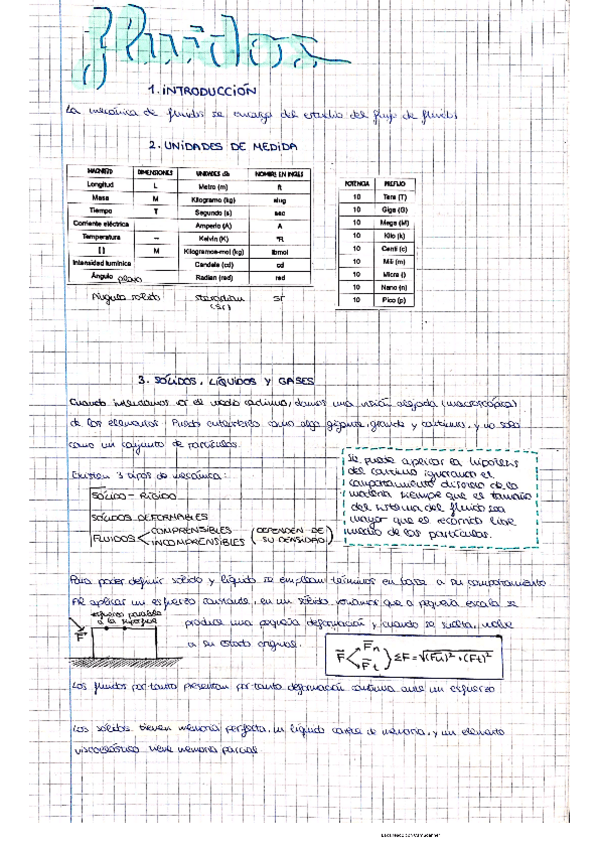 Fluidos
1. INTRODUCCIÓN
La mecánica de fluidos se encarga del estudio del flujo de fluidos
2. UNIDADES DE MEDIDA
MAGNITUD DIMENSIONES UNIDADES NOMBRE EN INGLÉS
Longitud L Metro (m) ft
Masa M Kilogramo (kg) slug
Tiempo T Segundo (s) sec
Corriente eléctrica Amperio (A) A
Temperatura -- Kelvin (K) °R
[] M Kilogramos-mol (kg) lbmol
Intensidad lumínica Candela (cd) cd
Ángulo plano Radian (rad) rad
Ángulo sólido (sr) sr
POTENCIA PREFIJO
10 Tera (T)
10 Giga (G)
10 Mega (M)
10 Kilo (k)
10 Centi (c)
10 Mili (m)
10 Micra ()
10 Nano (n)
10 Pico (p)
3. SÓLIDOS, LÍQUIDOS Y GASES
Cuando el medio continuo, damos una visión alejada (macroscópica)
de los elementos. Puedo entenderlos como algo gigante, grande y continuo, y no solo
como un conjunto de partículas.
Se puede aplicar la hipótesis
del continuo ignorando el
comportamiento discreto de la
materia siempre que el tamaño
del sistema del fluido sea
mayor que el recorrido libre
medio de las partículas.
Existen 3 tipos de mecánica:
SÓLIDO - RÍGIDO
SÓLIDOS DEFORMABLES
FLUIDOS < COMPRENSIBLES
INCOMPRENSIBLES (DEPENDEN DE SU DENSIDAD)
Para poder definir sólido y líquido se emplean términos en base a su comportamiento
Al aplicar un esfuerzo constante, en un sólido, veremos que a pequeña escala se
produce una pequeña deformación y cuando se suelta, vuelve
a su estado original.
esfuerzo paralelo
a la superficie
F
F < Fn Ft } ΣF = √(Fn)² + (Ft)²
Los fluidos por tanto presentan por tanto deformación continua ante un esfuerzo
Los sólidos tienen memoria perfecta, un líquido carece de memoria, y un elemento
viscoelástico tiene memoria parcial